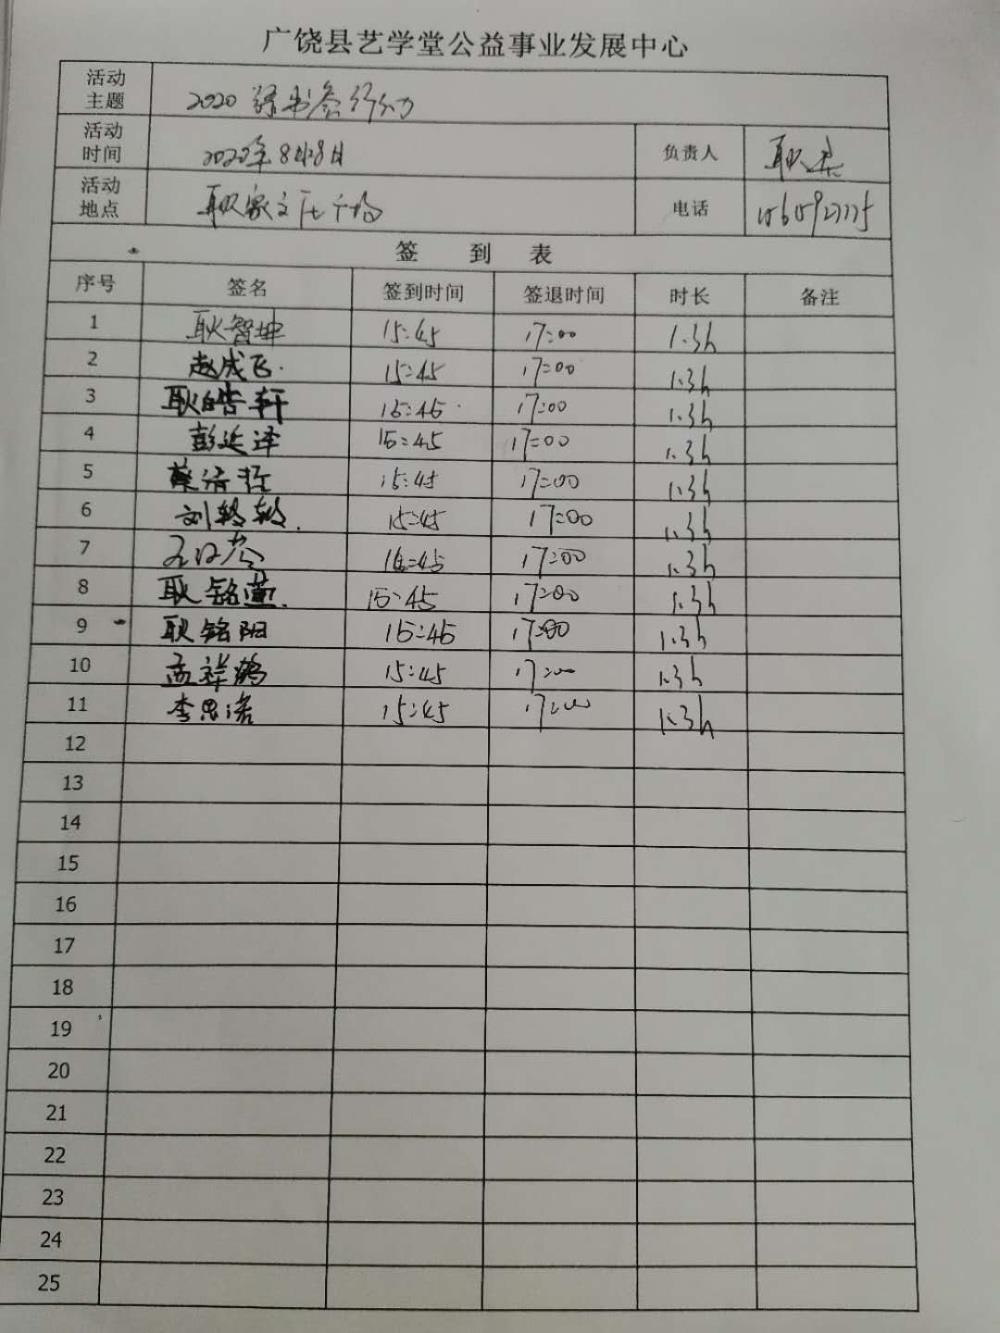 广饶县艺学堂公益事业发展中心
活动主题 2020 绿书签行动
活动时间 2020年8月8日 负责人 耿
活动地点 耿家文化广场 电话
签 到 表
序号 签名 签到时间 签退时间 时长 备注
1 耿智坤 15:45 17:00 1.3h
2 赵成飞 15:45 17:00 1.3h
3 耿皓轩 15:45 17:00 1.3h
4 彭延泽 15:45 17:00 1.3h
5 蔡 15:45 17:00 1.3h
6 刘 15:45 17:00 1.3h
7 17:00 1.3h
8 耿铭萱 15:45 17:00 1.3h
9 耿铭阳 15:45 17:00 1.3h
10 孟祥鹤 15:45 17:00 1.3h
11 李思诺 15:45 17:00 1.3h
12
13
14
15
16
17
18
19
20
21
22
23
24
25